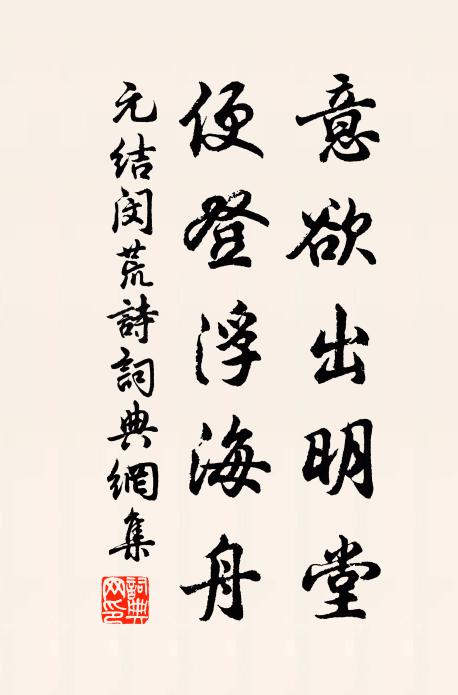 意欲出明堂
便登浮海舟
元结闵荒詩詞典網集
詞典網印